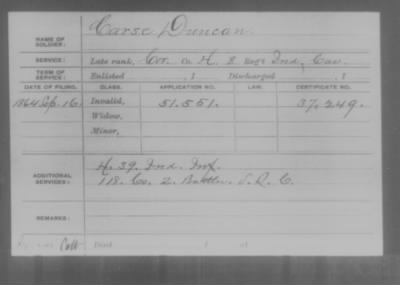 NAME OF SOLDIER: Carse, Duncan.
SERVICE: Late rank, Cor. Co. H, 8 Reg't Ind. Cav.
TERM OF SERVICE: Enlisted , 1 Discharged , 1
DATE OF FILING. CLASS. APPLICATION NO. LAW. CERTIFICATE NO.
1864 Sep. 16. Invalid, 51.551. 37.249.
Widow,
Minor,
ADDITIONAL SERVICES: H. 39. Ind. Inf.
118. Co. 2. Battln. V. R. C.
REMARKS:
Died , 1 at